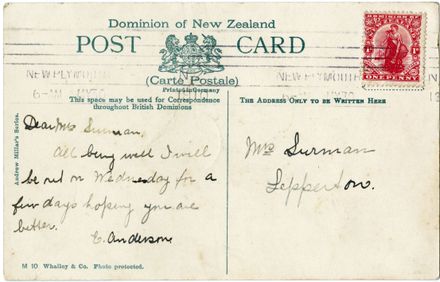 Dominion of New Zealand
POST CARD
(Carte Postale)
Printed in Germany
NEW PLYMOUTH
NEW PLYMOUTH
ONE PENNY
This space may be used for Correspondence
throughout British Dominions
THE ADDRESS ONLY TO BE WRITTEN HERE
Andrew Millar's Series.
Dear Mrs Surman,
All being well I will
be out on Wednesday for a
few days hoping you are
better.
C. Anderson
Mrs Surman
Lepperton.
M 10 Whalley & Co. Photo protected.